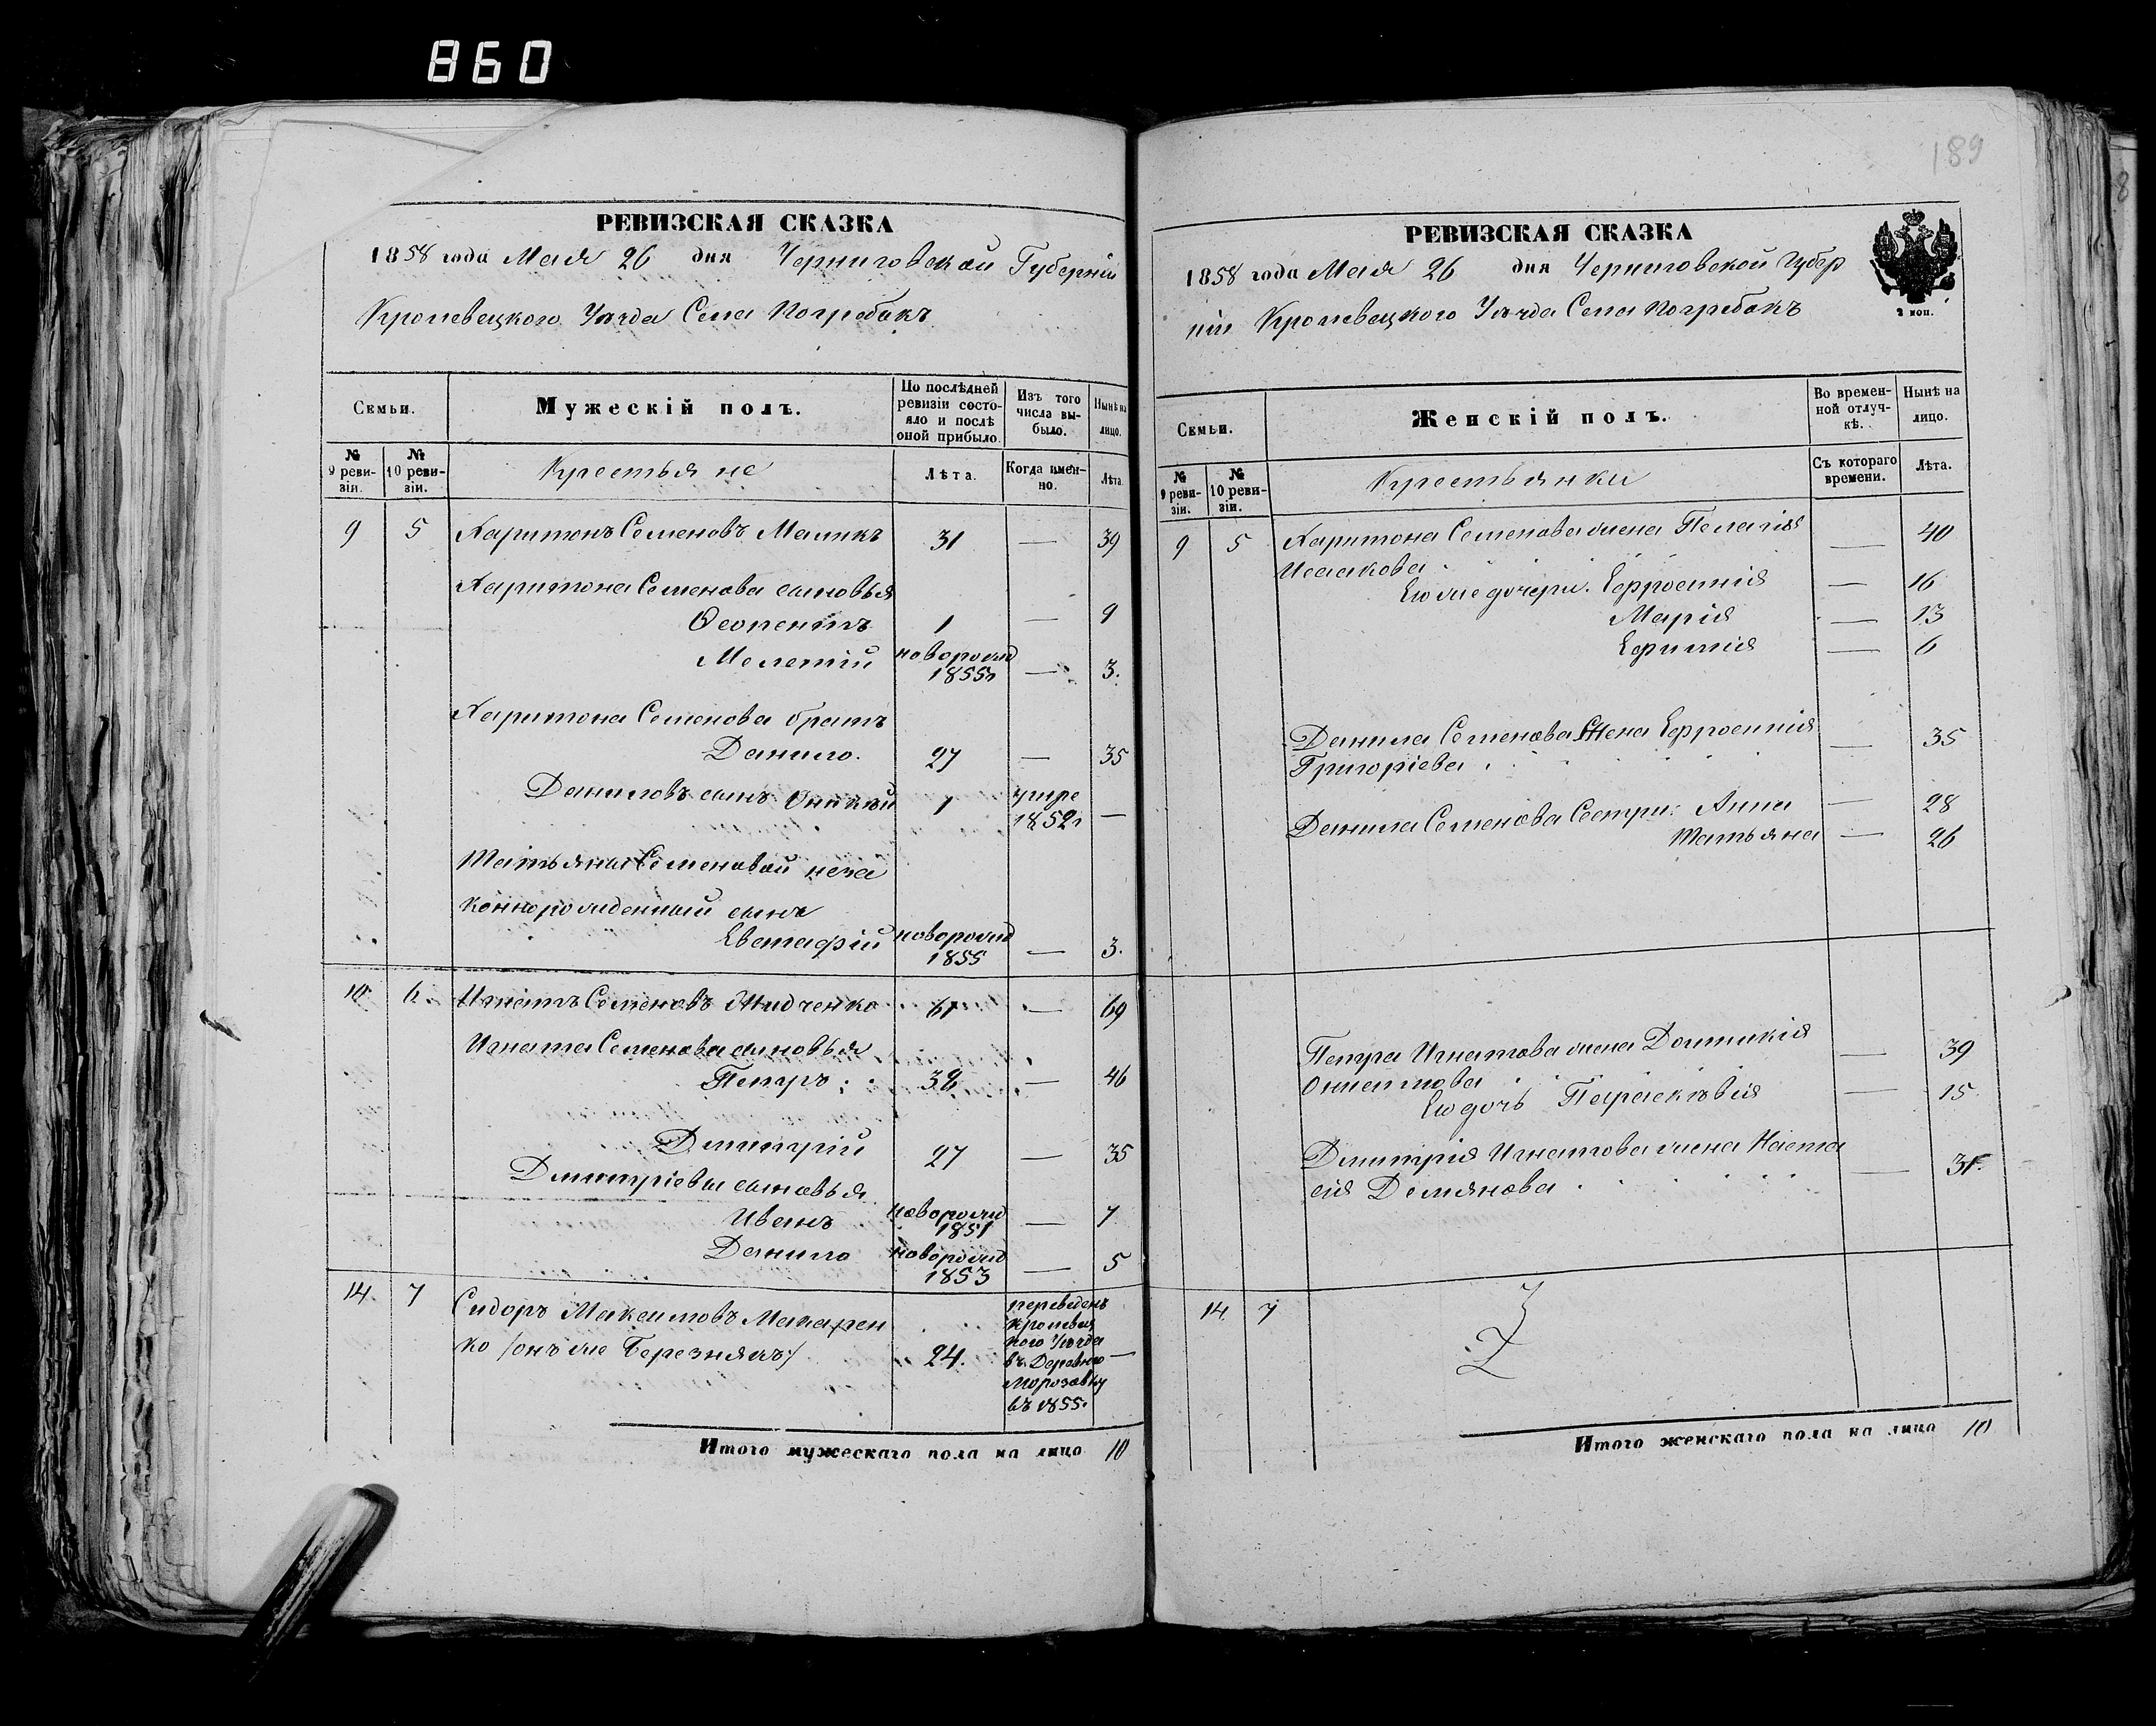 860
РЕВИЗСКАЯ СКАЗКА
1858 года Мая 26 дня Черниговской Губерніи
Кролевецкого Уѣзда Села Погребокъ
Семьи.
Мужескій полъ.
По послѣдней ревизіи состояло и послѣ оной прибыло.
Изъ того числа выбыло.
Нынѣ на лицо.
№ 9 ревизія.
№ 10 ревизіи.
Крестьяне
Лѣта.
Когда именно.
Лѣта.
9 5 Харитонъ Семеновъ Маликъ 31 — 39
Харитона Семенова сыновья
Феопентъ 1 — 9
Мелетій новорожд 1855г — 3.
Харитона Семенова братъ
Данило. 27 — 35
Даниловъ сынъ 1 умре 1852г —
Татьяны Семеновой неза
коннорожденный сынъ
Евстафій новорожд 1855 — 3.
10 6. Игнатъ Семеновъ 61 — 69
Игната Семенова сыновья
Петръ 38 — 46
Дмитрій 27 — 35
Дмитріевы сыновья
Иванъ новорожд 1851 — 7
Данило новорожд 1853 — 5
14. 7 Сидоръ Максимовъ Макарен
ко /онъ же Березнякъ/ 24. переведенъ Кролевец кого Уѣзда въ Деревню Морозовку въ 1855. —
Итого мужескаго пола на лицо 10
189
РЕВИЗСКАЯ СКАЗКА
1858 года Мая 26 дня Черниговской Губер
ніи Кролевецкого Уѣзда Села Погребокъ
2 коп.
Семьи.
Женскій полъ.
Во временной отлучкѣ.
Нынѣ на лицо.
№ 9 ревизіи.
№ 10 ревизіи.
Крестьянки
Съ котораго времени.
Лѣта.
9 5 Харитона Семенова жена Пелагія — 40
Исаакова
Ею же дочери. Ефросинія — 16
Марія — 13
Ефимія — 6
Данила Семенова Жена Ефросинія — 35
Григоріева
Данила Семенова Сестры: Анна — 28
Татьяна — 26
Петра Игнатова жена Домникія — 39
Ею дочь Парасковія — 15.
Дмитрія Игнатова жена Наста — 31.
сія Демянова
14. 7
Итого женскаго пола на лицо 10